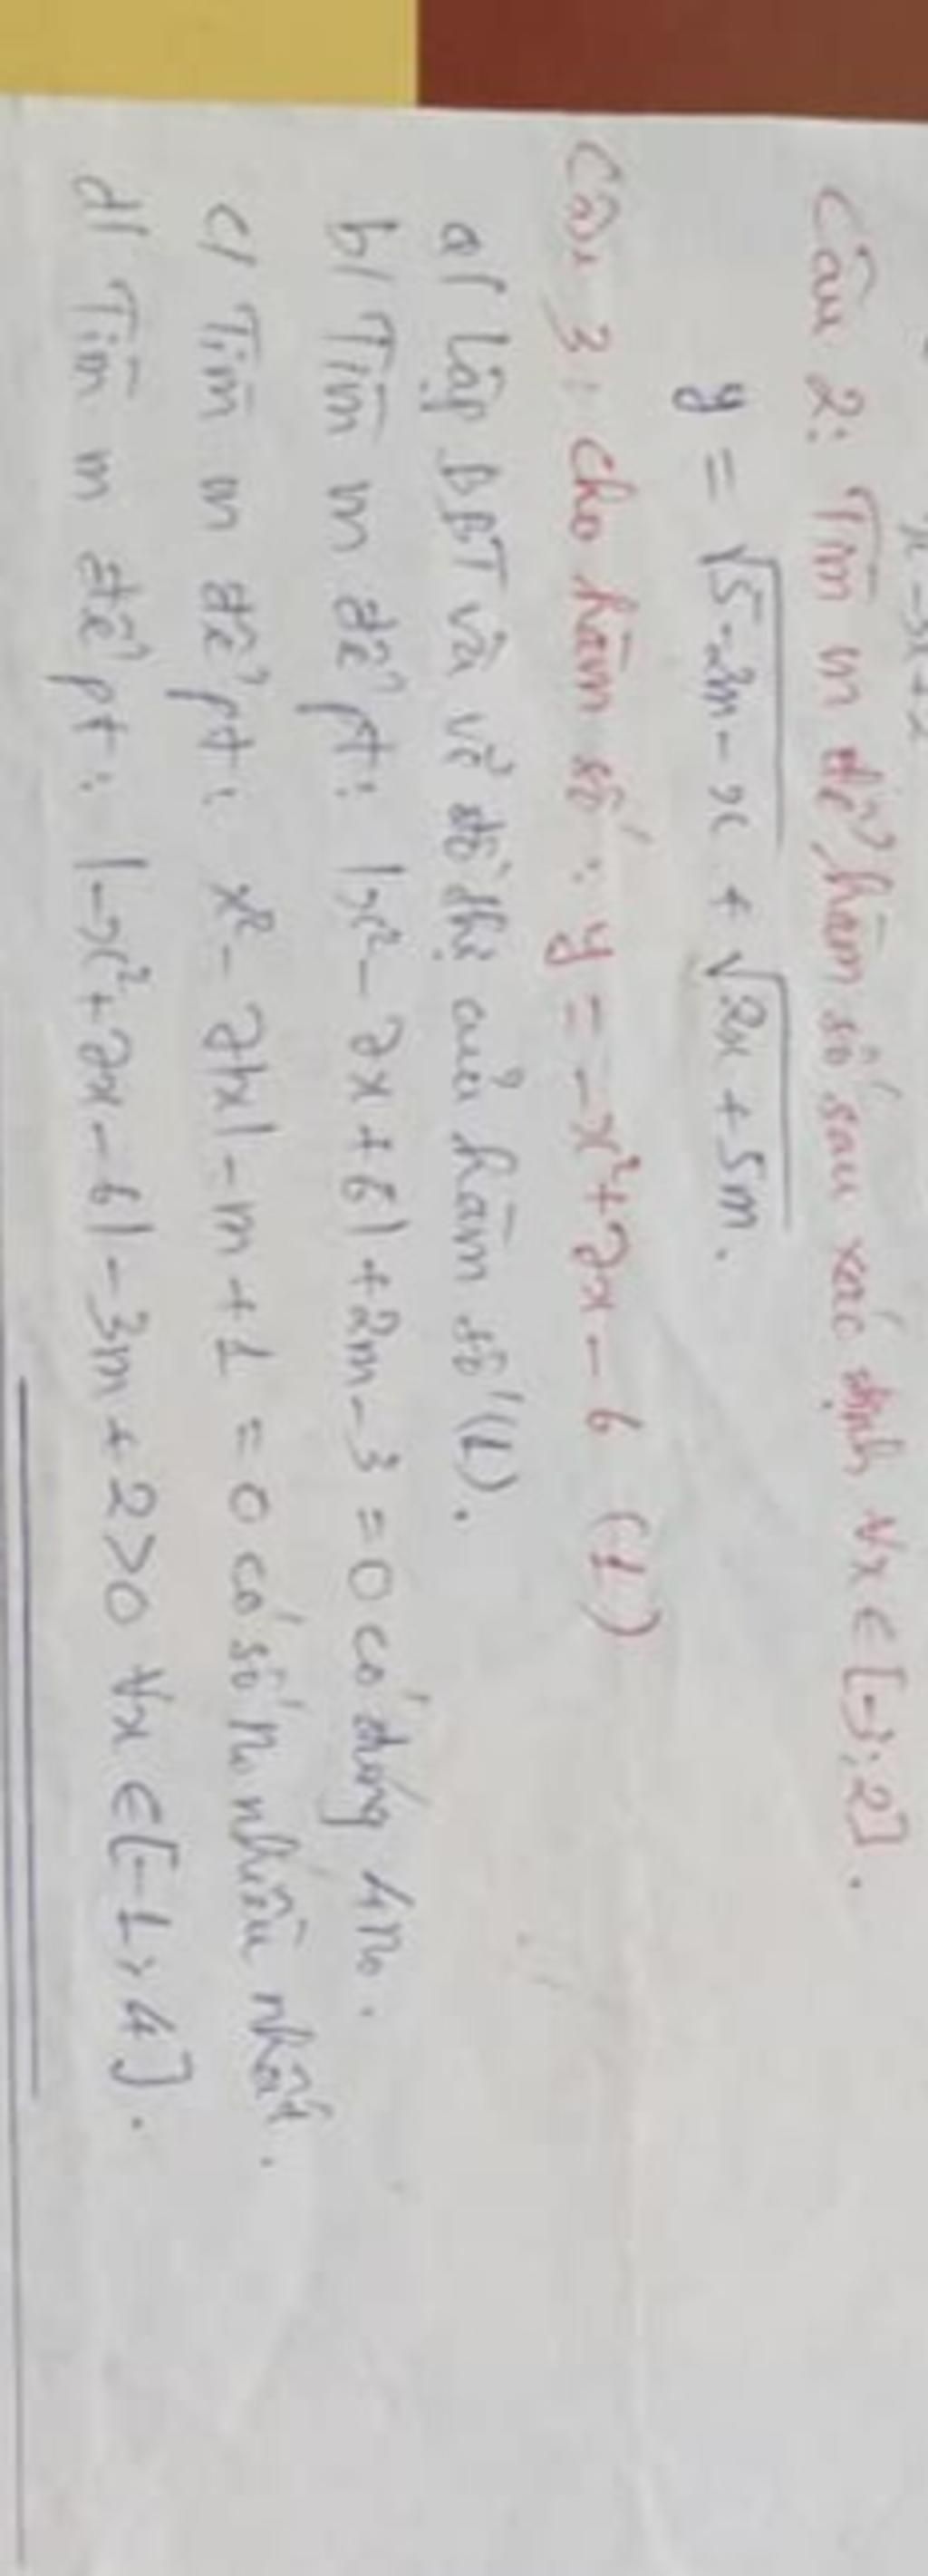 Câu 2: Tìm m để hàm số sau xác định ∀x ∈ [-3; 2].
y = √(5-2m-x) + √(2x+5m).
Câu 3: cho hàm số: y = -x² + 2x - 6 (1)
a/ lập BBT và vẽ đồ thị của hàm số (1).
b/ Tìm m để pt: |x² - 2x + 6| + 2m - 3 = 0 có đúng 4 no.
c/ Tìm m để pt: x² - 2|x| - m + 1 = 0 có số no nhiều nhất.
d/ Tìm m để pt: |-x² + 2x - 6| - 3m + 2 > 0 ∀x ∈ [-1; 4].